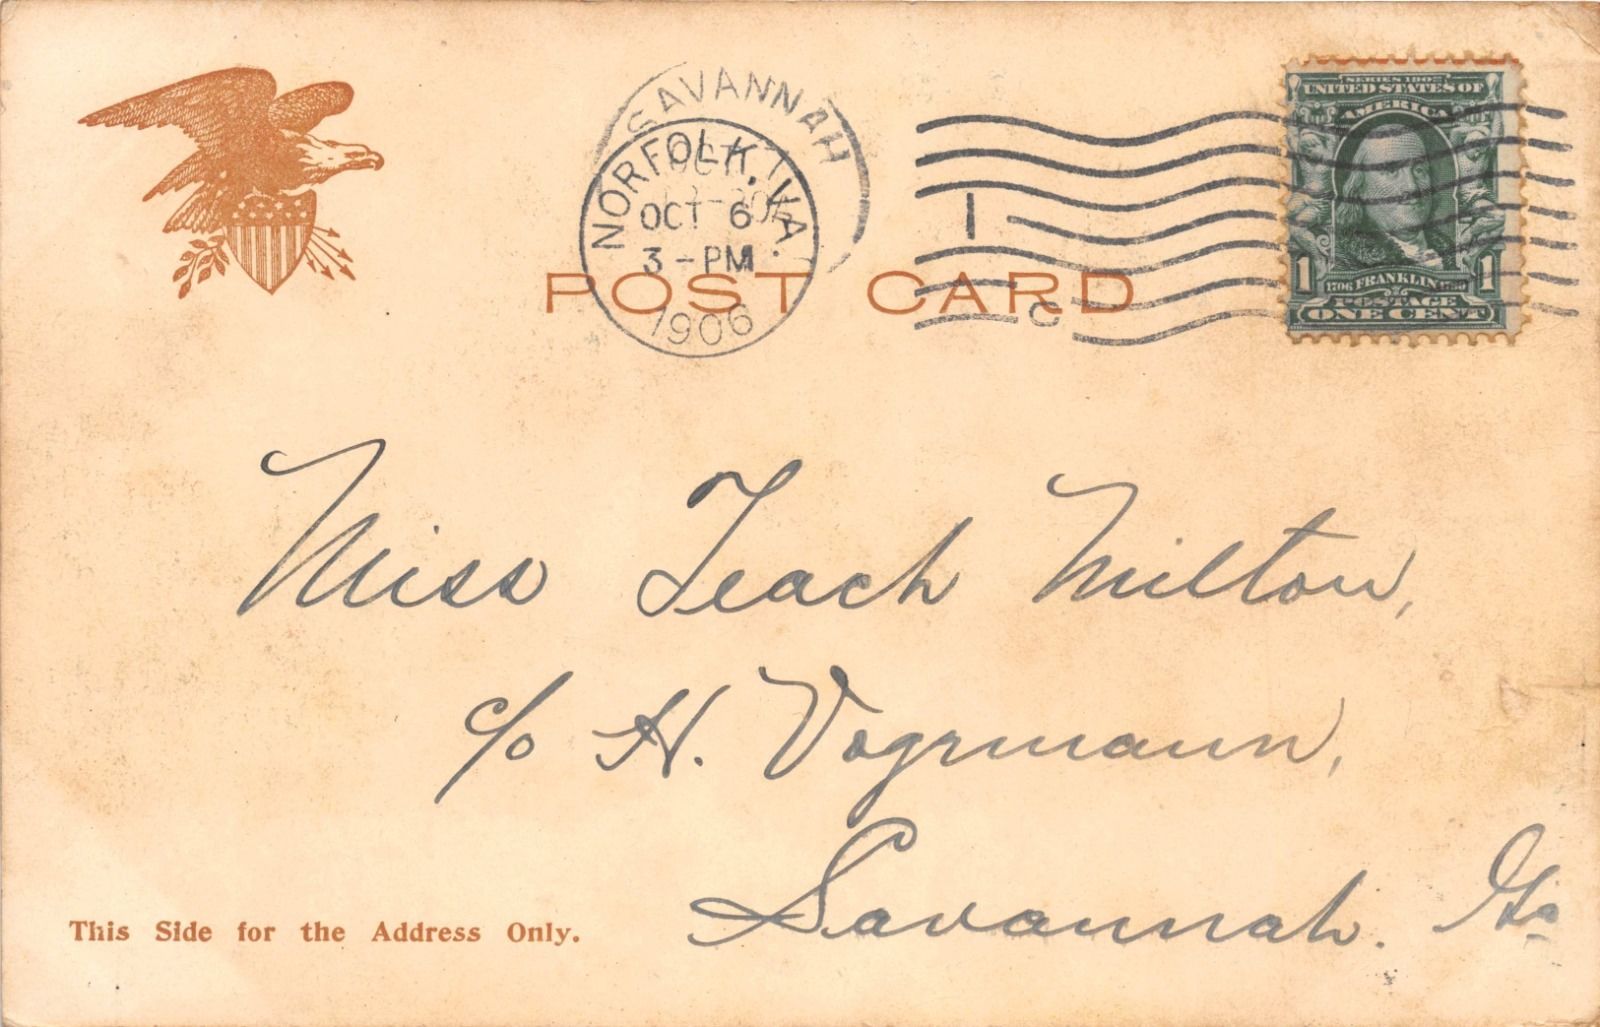 SAVANNAH
OCT
NORFOLK, VA.
OCT 6
3-PM
1906
1
C
SERIES 1902
UNITED STATES OF
AMERICA
1 1
1706 FRANKLIN 1790
POSTAGE
ONE CENT
POST CARD
Miss Teach Milton,
c/o H. Vogrmann,
Savannah. Ga
This Side for the Address Only.